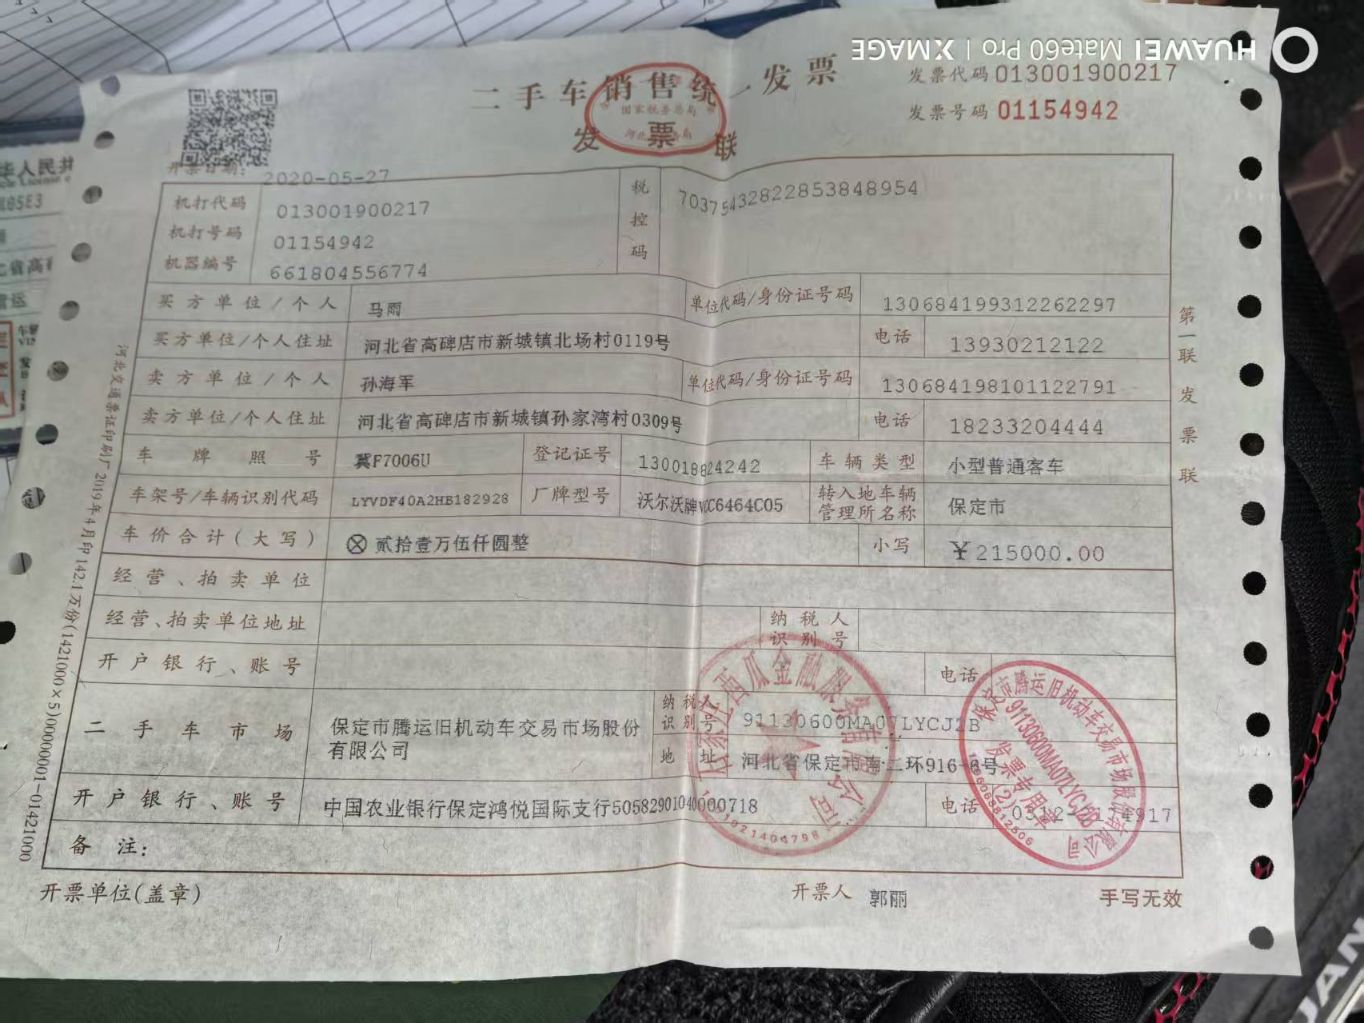 HUAWEI Mate60 Pro | XMAGE
二手车销售统一发票
发票联
国家税务总局
发票代码 013001900217
发票号码 01154942
开票日期: 2020-05-27
机打代码 013001900217
机打号码 01154942
机器编号 661804556774
税控码 70375432822853848954
买方单位/个人 马雨 单位代码/身份证号码 130684199312262297
买方单位/个人住址 河北省高碑店市新城镇北场村0119号 电话 13930212122
卖方单位/个人 孙海军 单位代码/身份证号码 130684198101122791
卖方单位/个人住址 河北省高碑店市新城镇孙家湾村0309号 电话 18233204444
车牌照号 冀F7006U 登记证号 130018824242 车辆类型 小型普通客车
车架号/车辆识别代码 LYVDF40A2HB182928 厂牌型号 沃尔沃牌VCC6464C05 转入地车辆管理所名称 保定市
车价合计(大写) ⊗贰拾壹万伍仟圆整 小写 ¥215000.00
经营、拍卖单位
经营、拍卖单位地址 纳税人识别号
开户银行、账号 电话
二手车市场 保定市腾运旧机动车交易市场股份有限公司 纳税人识别号 91130600MA07LYCJ2B
地址 河北省保定市南二环916-6号
开户银行、账号 中国农业银行保定鸿悦国际支行50582901040000718 电话
备注:
开票单位(盖章) 开票人 郭丽 手写无效
第一联 发票联
河北交通票证印刷厂2019年4月印142.1万份(1421000×5)00000001-01421000
西瓜金融服务有限公司
保定市腾运旧机动车交易市场股份有限公司
91130600MA07LYCJ2B
发票专用章
(2)
华人民共